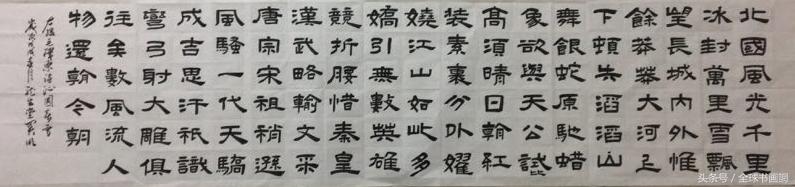 北國風光千里
冰封萬里雪飄
望長城內外惟
餘莽莽大河上
下頓失滔滔山
舞銀蛇原馳蜡
象欲與天公試比
高須晴日看紅
裝素裹分外
嬈江山如此多
嬌引無數英雄
競折腰惜秦皇
漢武略輸文采
唐宗宋祖稍遜
風騷一代天驕
成吉思汗祇識
彎弓射大雕俱
往矣數風流人
物還看今朝
右錄毛澤東詩沁園春雪
歲次戊戌春月
头条号 / 全球书画网